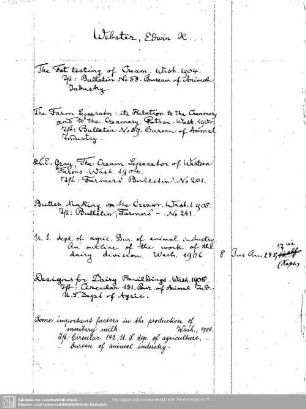 Webster, Edwin H...
The Fat testing of Cream. Wash. 1904.
In: Bulletin No 58. Bureau of Animal
Industry
The Farm Separator: its Relation to the Creamery
and to the Creamery Patron. Wash. 1904.
In: Bulletin No 59. Bureau of Animal
Industry
& C.E. Gray, The Cream Separator of Western
Farms. Wash. 1904.
In: Farmers' Bulletin. No 201.
Butter Making on the Farm. Wash. 1905.
In: Bulletin, Farmers' - No. 241.
U. S. dept. of agric. Bur. of animal industry.
An outline of the work of the
dairy division. Wash. 1906
8
Designs for Dairy Buildings. Wash. 1908.
In: Circular 131. Bur. of Animal Ind.
U. S. Dept of Agric.
Some important factors in the production of
sanitary milk Wash., 1909.
In: Circular 142 U. S. dep. of agriculture,
bureau of animal industry.